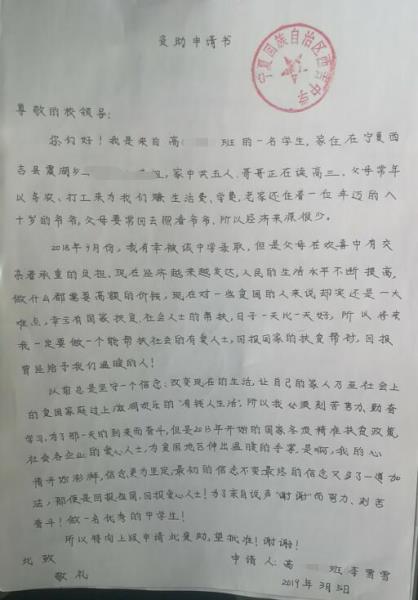 受助申请书
宁夏回族自治区西吉中学
尊敬的校领导:
您们好!我是来自高 班的一名学生,家住在宁夏西
吉县震湖乡 组,家中共五人、哥哥正在读高三、父母常年
以务农、打工来为我们赚生活费、学费,老家还住着一位年迈的八
十岁的爷爷。父母要常回去照看爷爷、所以经济来源很少。
2018年9月份,我有幸被该中学录取,但是父母在欢喜中有交
杂着承重的负担、现在经济越来越发达,人民的生活水平不断提高,
做什么都需要高额的价钱,现在对一些贫困的人来说却实还是一大
难点,幸亏有国家扶贫、社会人士的帮扶,日子一天比一天好,所以将来
我一定要做一个能帮扶社会的有爱人士,回报国家的扶贫帮助,回报
曾经给予我们温暖的人!
以前总是坚守一个信念:改变现在的生活,让自己的家人乃至社会上
的贫困家庭过上 欢乐的“有钱人生活”所以我必须刻苦努力、勤奋
学习,为了那一天的到来而奋斗,但是2013年开始的国家各项精准扶贫政策
社会各企业的爱心人士,为贫困地区伸出温暖的手掌,是啊,我的心
情开始澎湃,信念更为坚定,最初的信念不变最终的信念又多了一道加
法,那便是回报祖国,回报爱心人士!为了亲自说声“谢谢”而努力、刻苦
奋斗!做一名优秀的中学生!
所以特向上级申请此受助,望批准!谢谢!
此致 申请人:高 班:李雪雪
敬礼 2019年3月5日